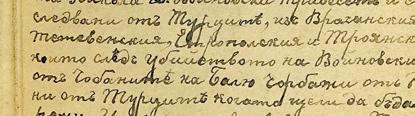 следвани отъ Турците, изъ Врачанския
Тетевенския, Етрополския и Троянск
които следъ убийството на Войновски
отъ Чобаните на Балю Чорбажи отъ
ни отъ Турците когато щели да бъда